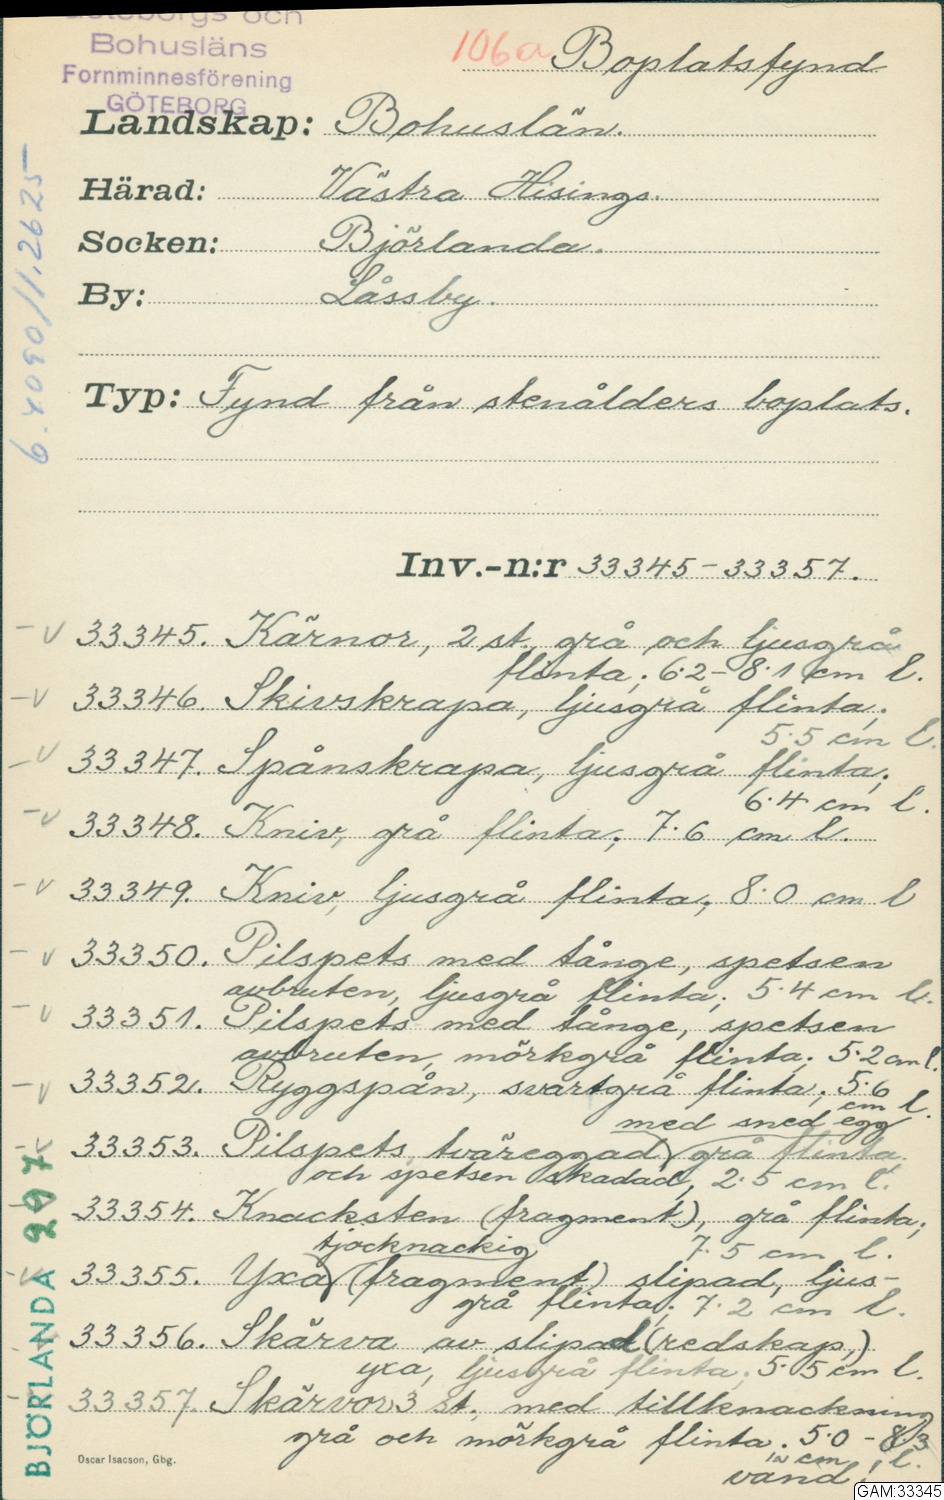 Göteborgs och
Bohusläns
Fornminnesförening
GÖTEBORG
106a Boplatsfynd
Landskap: Bohuslän.
Härad: Västra Hisings.
Socken: Björlanda.
By: Låssby.
Typ: Fynd från stenålders boplats.
Inv.-n:r 33345-33357.
33345. Kärnor, 2 st. grå och ljusgrå
flinta; 6.2-8.1 cm l.
33346. Skivskrapa, ljusgrå flinta;
5.5 cm l.
33347. Spånskrapa, ljusgrå flinta;
6.4 cm l.
33348. Kniv, grå flinta; 7.6 cm l.
33349. Kniv, ljusgrå flinta; 8.0 cm l
33350. Pilspets med tånge, spetsen
avbruten, ljusgrå flinta; 5.4 cm l.
33351. Pilspets med tånge, spetsen
avbruten, mörkgrå flinta; 5.2 cm l.
33352. Ryggspån, svartgrå flinta; 5.6
cm l.
med sned egg
33353. Pilspets, tväreggad, grå flinta.
och spetsen skadad, 2.5 cm l.
33354. Knacksten (fragment), grå flinta;
7.5 cm l.
tjocknackig
33355. Yxa, (fragment) slipad, ljus-
grå flinta; 7.2 cm l.
33356. Skärva av slipad (redskap,)
yxa, ljusgrå flinta; 5.5 cm l.
33357. Skärvor 3 st., med tillknackning
grå och mörkgrå flinta. 5.0-8.3
cm l.
vänd!
Oscar Isacson, Gbg.
6.4090/1.2625
BJÖRLANDA 297
GAM:33345